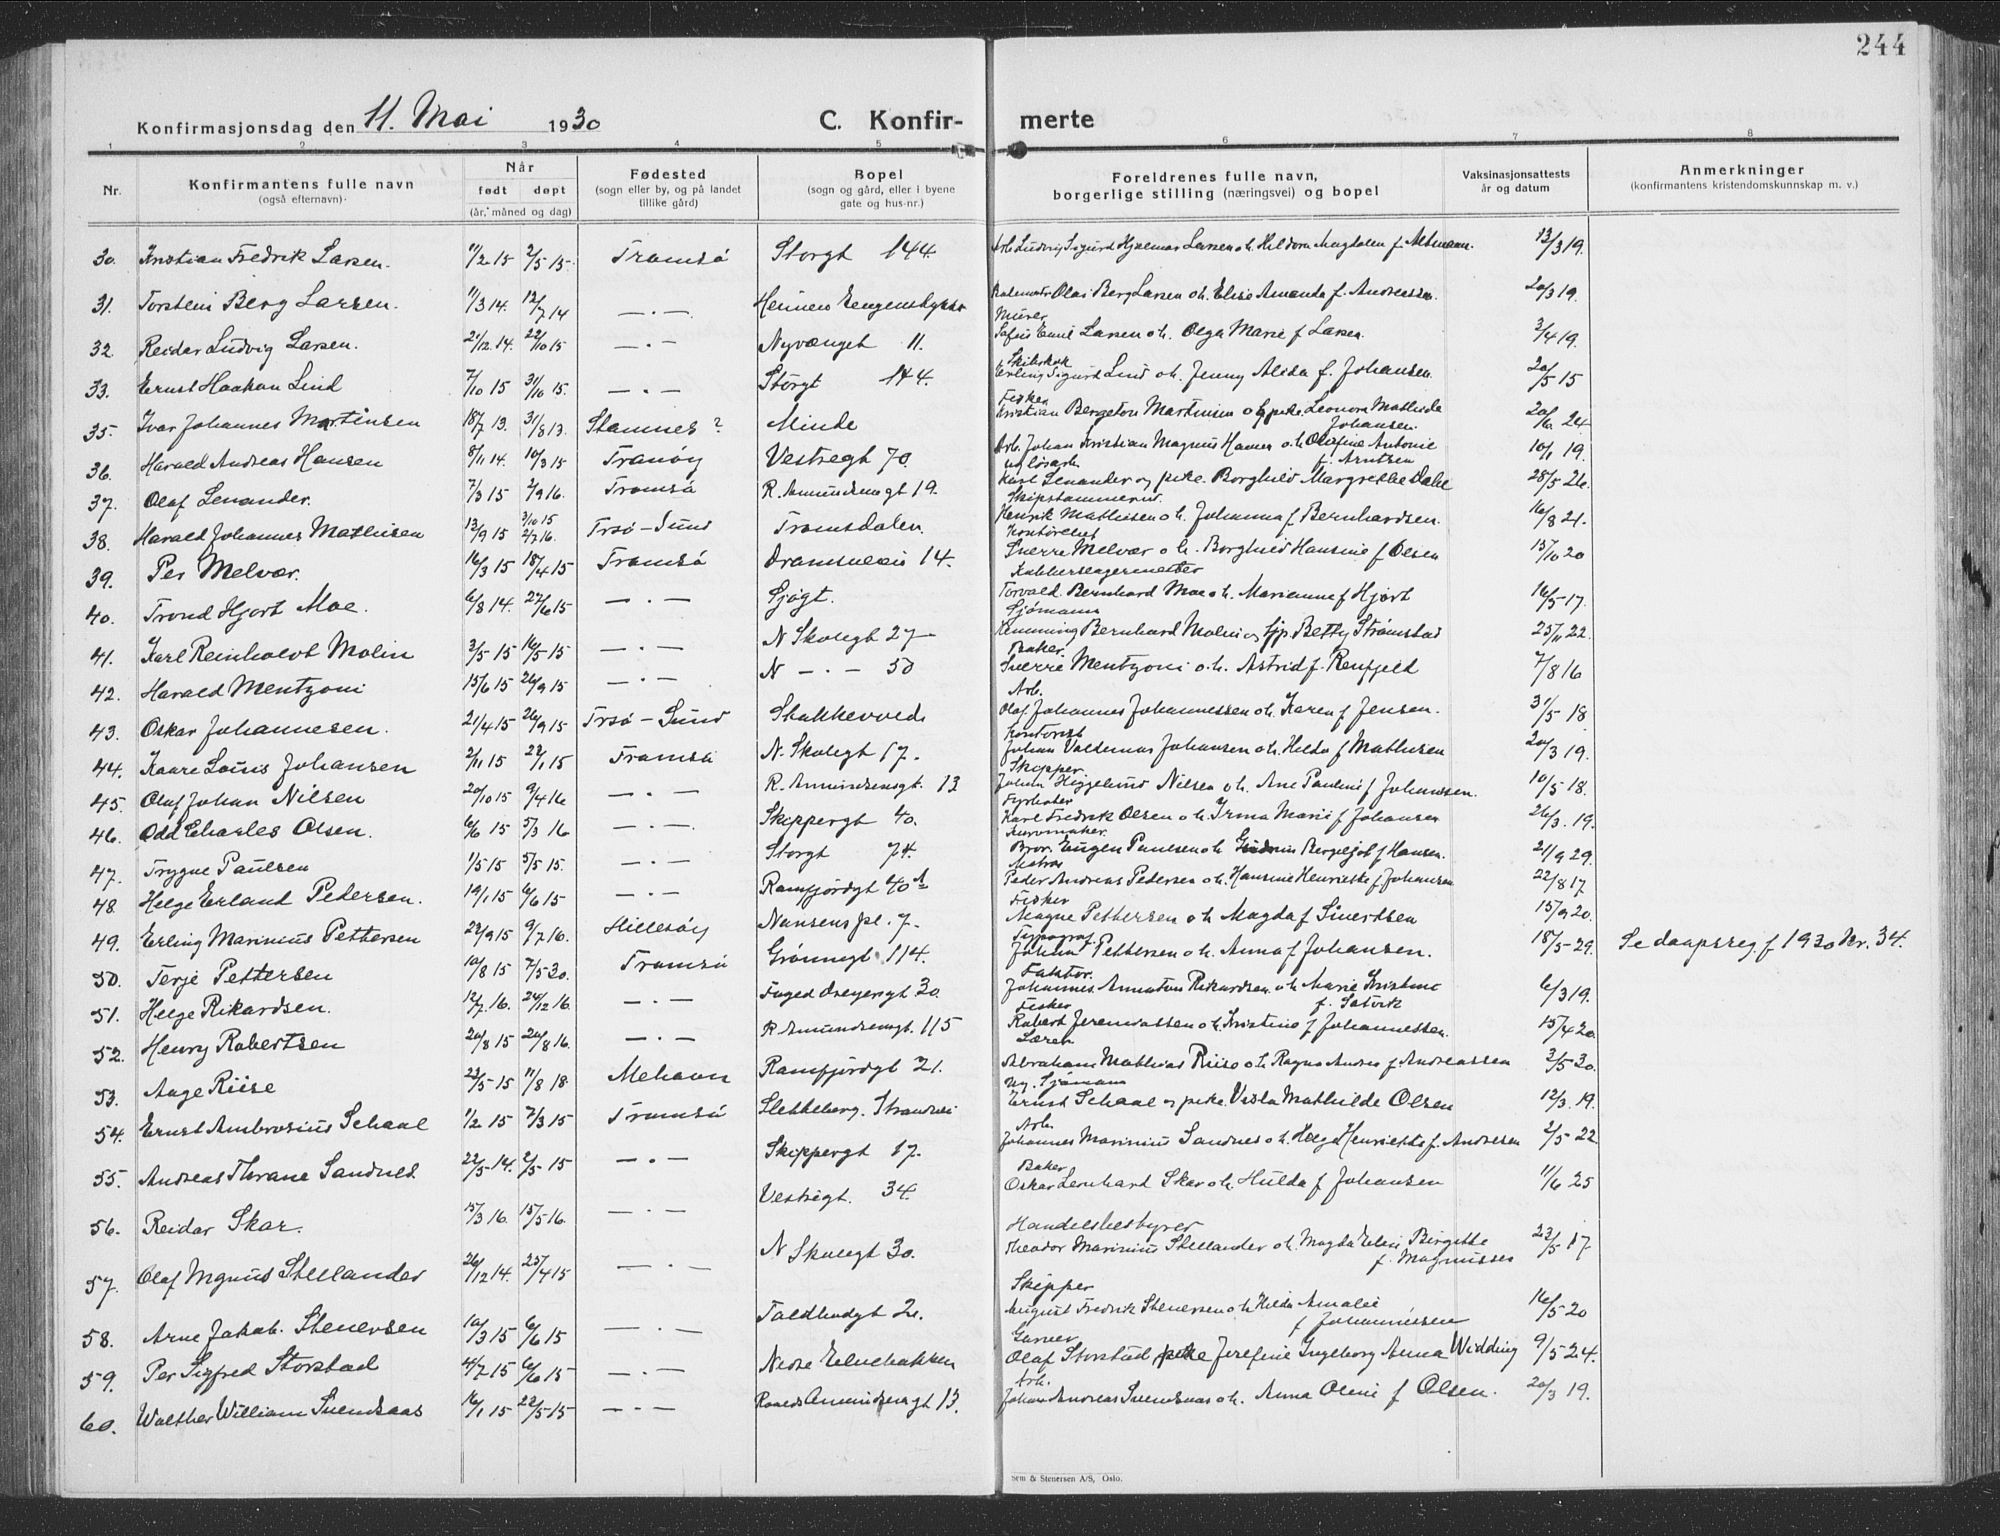 244
Konfirmasjonsdag den 11. Mai 1930 C. Konfir- merte
1 2 3 4 5 6 7 8
Nr. Konfirmantens fulle navn (også efternavn) Når født døpt (år, måned og dag) Fødested (sogn eller by, og på landet tillike gård) Bopel (sogn og gård, eller i byene gate og hus-nr.) Foreldrenes fulle navn, borgerlige stilling (næringsvei) og bopel Vaksinasjonsattests år og datum Anmerkninger (konfirmantens kristendomskunnskap m. v.)
30. Kristian Fredrik Larsen. 11/2 15 2/5 15. Tromsø Storgt 144. Arb. Ludvig Sigurd Hjalmar Larsen o. h. Magdalen f. Altmann. 13/3 19.
31. Torstein Berg Larsen. 11/3 14. 12/7 14 — . — Olai Berg Larsen o. h. Elise Amanda f. Andreassen. 20/3 19.
32. Reidar Ludvig Larsen. 21/12 14. 22/10 15 — . — Nyvænget 11. Murer Sofus Emil Larsen o. h. Olga Marie f. Larsen 3/4 19.
33. Ernst Haakon Lind 7/10 15 31/10 15. — . — Storgt 144. Skibskok Erling Sigurd Lind o. h. Jenny Alida f. Johansen. 20/5 15
35. Ivar Johannes Martinsen 18/7 13. 31/8 13. Stamnes ? Minde Fisker Kristian Bergeton Martinsen og pike Leonora Mathilda Johansen. 20/6 24
36. Harald Andreas Hansen 8/11 14. 10/3 15 Tranøy Vestregt 70. Arb. Johan Kristian Magnus Hansen o. h. Olafine Antonie f. Arntsen 10/1 19.
37. Olaf Lenander. 7/3 15 2/9 16. Tromsø R. Amundsensgt 19. Karl Lenander og pike Borghild Margrethe Dahl 28/5 26.
38. Harald Johannes Mathisen 13/9 15 3/10 15 2/7 16. Trsø - Sund Tromsdalen. Skipstømmermd. Henrik Mathisen o. h. Johanna f. Bernhardsen. 16/8 21.
39. Per Melvær. 16/3 15 18/4 15 Tromsø Dramsveien 14. Kontorchef Sverre Melvær o. h. Borghild Hansine f. Olsen 15/10 20
40. Trond Hjort Moe. 6/8 14. 27/6 15 — . — Sjøgt. Torvald Bernhard Moe o. h. Marianne f. Hjort 16/5 17.
41. Karl Reinholdt Molin 3/5 15 16/5 15 — . — N Skolegt 27 Sjømann Bernhard Molin og Betty Strømstad 25/11 22.
42. Harald Mentzoni 15/6 15 26/9 15 — . — N — . — 50 Baker Sverre Mentzoni o. h. Astrid f. Renfjeld 7/8 16
43. Oskar Johannesen. 21/4 15 26/9 15 Trsø - Sund Arb. Olaf Johannes Johannessen o. h. Karen f. Jensen. 31/5 18
44. Kaare Louis Johansen 2/11 15 22/1 15 Tromsø N. Skolegt 17. Kontorist Johan Valdemar Johansen o. h. Hilda f. Mathisen 20/3 19.
45. Olaf Johan Nilsen 20/10 15 9/4 16 — . — R. Amundsensgt. 13 Skipper Johan Figgelund Nilsen o. h. Ane Pauline f. Johanssen. 10/5 18.
46. Odd Charles Olsen. 6/6 15 5/3 16 — . — Skippergt 40. Fyrbøter Karl Fredrik Olsen o. h. Irma Marie f. Johansen 26/3. 19.
47. Trygve Paulsen 1/5 15 5/5 15. — . — Storgt 74. Kurvmaker. Eugen Paulsen o. h. Bergljot f. Hansen. 21/9 29.
48. Helge Erland Pedersen. 19/1 15 6/6 15 — . — Ramfjordgt 40 A Matros Peder Andreas Pedersen o. h. Hansine Henriette f. Johansen 22/8 17
49. Erling Marinius Pettersen 22/9 15 9/7 16. Hillesøy Nansens pl. 7. Fisker Magne Pettersen o. h. Magda f. Sivertsen 15/9 20.
50. Terje Pettersen 10/8 15 7/5 30. Tromsø Grønnegt 114. Typograf Pettersen o. h. Anna f. Johansen. 18/5 29. Se daapsreg f. 1930 Nr. 34.
51. Helge Rikardsen. 12/7. 16. 24/12 16. — . — Faktor. Johannes Annaton Rikardsen o. h. Marie Kristine f. Satvik 6/3 19.
52. Henry Robertsen 20/8 15 20/8 16. — . — R. Amundsensgt. 115 Fisker Robert f. Johannessen. 15/4 20.
53. Aage Riise 23/5 15 11/8 18. Mehavn Ramfjordgt 21. Lærer Abraham Mathias Riise o. h. Ragna f. Andreassen 3/5 30.
54. Ernst Ambrosius Schaal 1/2 15 7/3 15 Tromsø Slettaberg. Strandvei Sjømann Ernst Schaal og pike. Vesta Mathilde Olsen 12/3. 19.
55. Andreas Thrane Sandnes 22/5 14. 2/5 15 — . — Skippergt 17. Arb. Johannes Marinius Sandnes o. h. Helga Henriette f. Andresen 2/5 22
56. Reidar Skar. 15/3 16. 15/5 16. — . — Vestregt. 34. Baker Oskar Lenhard Skar o. h. Hulda f. Johansen 11/6 25
57. Olaf Magnus Stellander 26/12 14. 25/4 15 — . — N Skolegt 30. Handelsbestyrer Theodor Marinius Stellander o. h. Magda Birgitte f. Magnussen 23/5 17
58. Arne Jakob. Stenersen 10/3 15 6/6 15 — . — Skipper August Fredrik Stenersen o. h. Hilda Amalie f. Johannesen 16/5 20
59. Per Sigfred Storstad 4/7 15 6/6 15 — . — Nedre Elvebakken Garver Olaf Storstad pike Josefine Ingeborg Anna Widding 9/5 24.
60. Walther William Svendsaas 16/1 15 22/5 15 — . — Roald Amundsensgt 13. Arb. Johan Andreas Svendsaas o. h. Anna Oline f. Olsen. 20/3 19.
Sem & Stenersen A/S, Oslo.